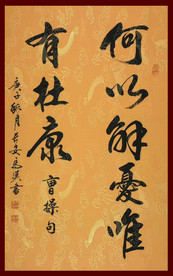 何以解憂唯
有杜康
曹操句
庚子秋月